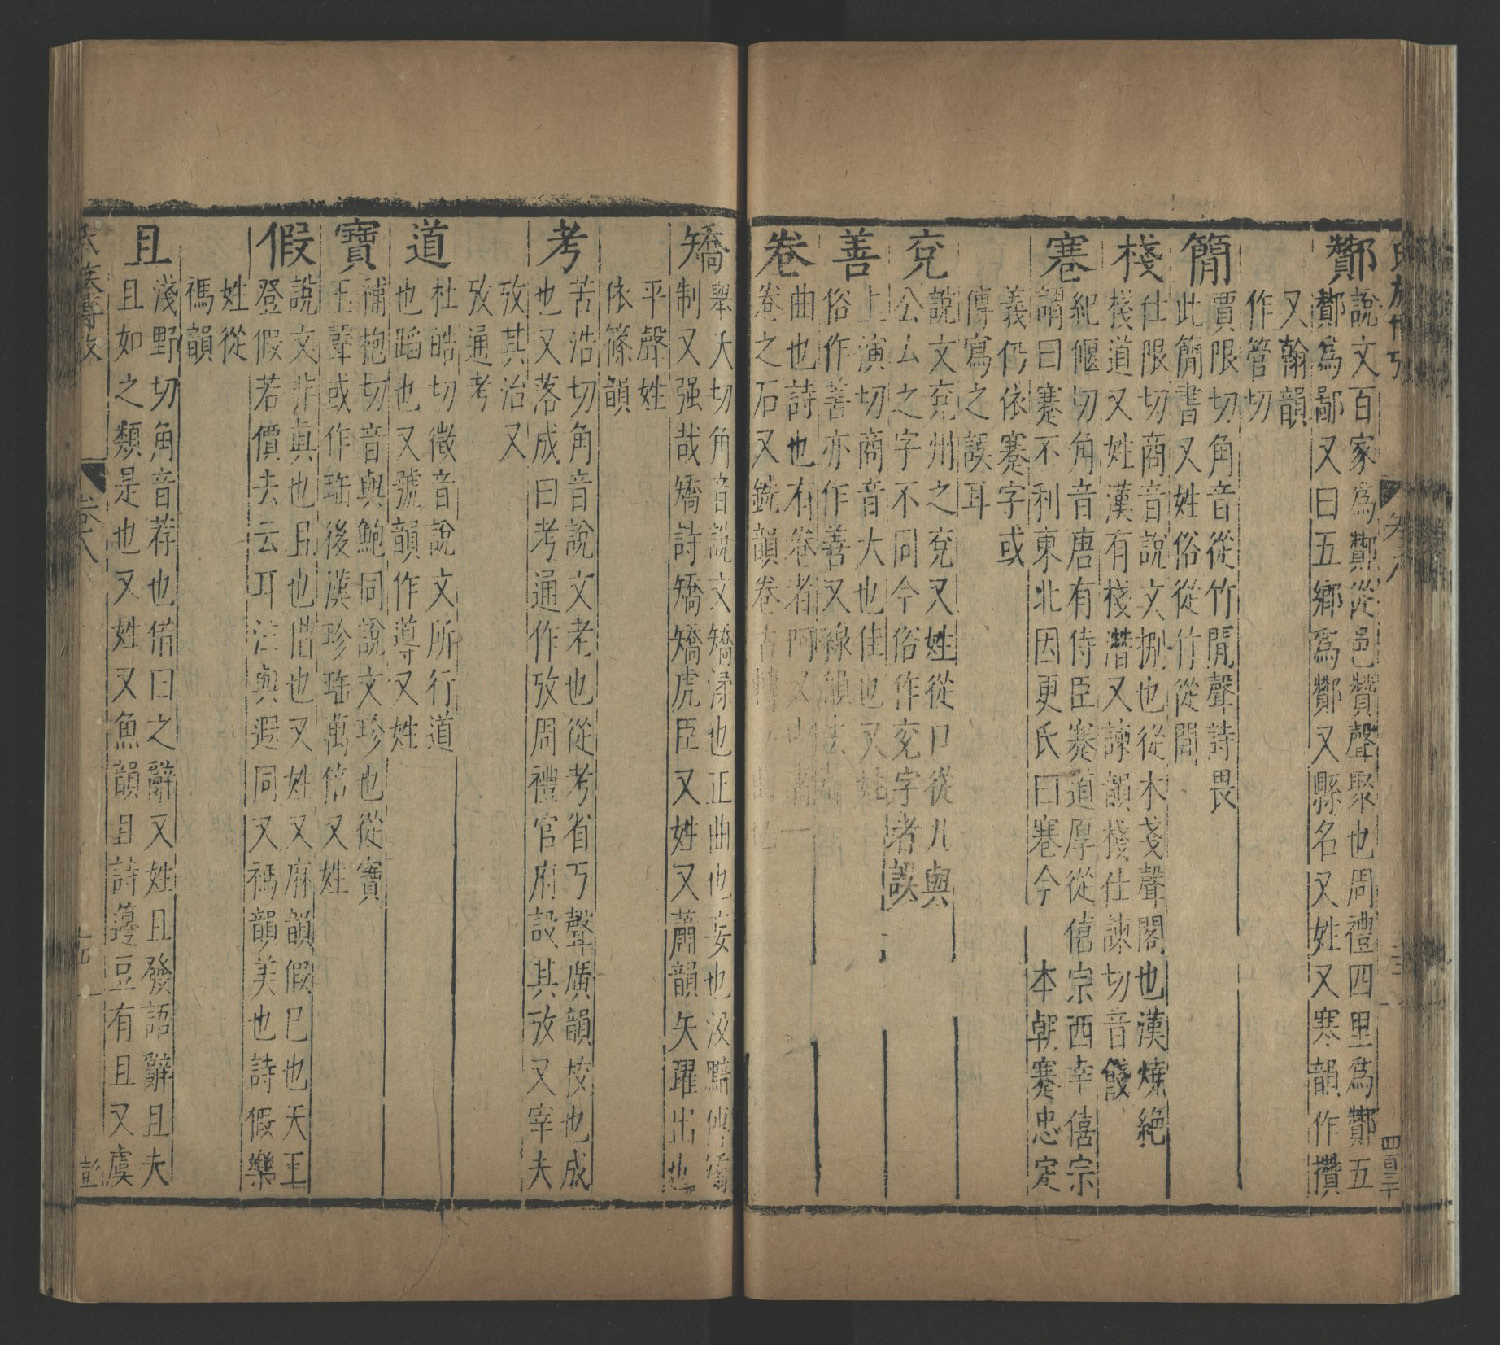 酇
說文百家爲酇從邑贊聲聚也周禮四里爲酇五
酇爲鄙又曰五鄉爲酇又縣名又姓又寒韻作攢
又翰韻
作管切
簡
賈限切角音從竹閒聲詩畏
此簡書又姓俗從竹從閒
棧
仕限切商音說文棚也從木戔聲閣也漢燒絶
棧道又姓漢有棧潛又諫韻棧仕諫切音餞
蹇
紀偃切角音唐有侍臣蹇道厚從僖宗西幸僖宗
謂曰蹇不利東北因更氏曰蹇今 本朝蹇忠定
義仍依蹇字或
傳寫之誤耳
兗
說文兗州之兗又姓從口從儿與
公厶之字不同今俗作兖字者誤
善
上演切商音大也佳也又姓
俗作善亦作善又線韻
卷
曲也詩也有卷者阿又
卷之石又銑韻卷
矯
舉夭切角音說文矯揉也正曲也妄也汲黯傳矯
制又强哉矯詩矯矯虎臣又姓又蕭韻矢躍出也
平聲姓
依篠韻
考
苦浩切角音說文老也從考省丂聲廣韻校也成
也又落成曰考通作攷周禮官府設其攷又宰夫
攷其治又
攷通考
道
杜皓切徵音說文所行道
也蹈也又號韻作導又姓
寶
補抱切音與鮑同說文珍也從寶
玉聲或作珤後漢珍珤萬倍又姓
假
說文非真也且也借也又姓又麻韻假巳也天王
登假若價去云耳注與遐同又禡韻美也詩假樂
姓從
禡韻
且
淺野切角音荐也借曰之辭又姓且發語辭且夫
且如之類是也又姓又魚韻且詩籩豆有且又虞
卷八